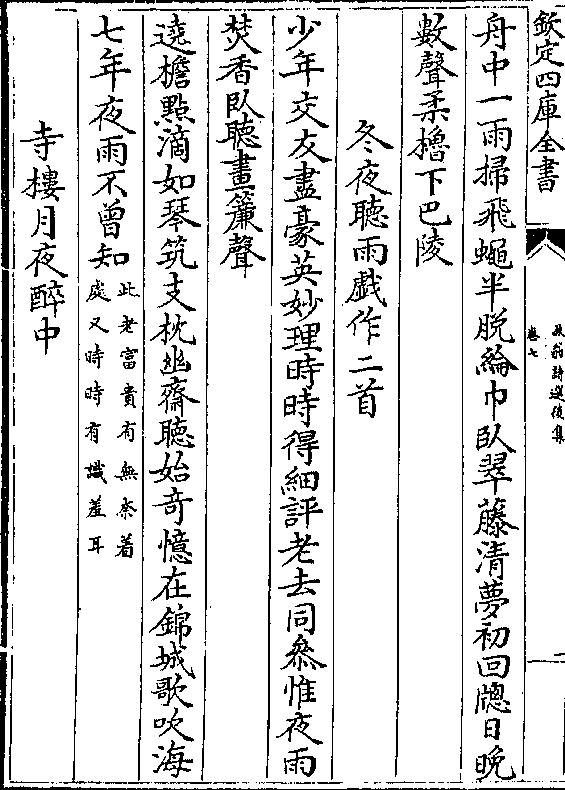 欽定四庫全書
放翁詩選後集
卷七
舟中一雨掃飛蠅半脫綸巾臥翠藤清夢初回牕日晚
數聲柔櫓下巴陵
冬夜聽雨戯作二首
少年交友盡豪英妙理時時得細評老去同叅惟夜雨
焚香臥聽畫簾聲
遶檐點滴如琴筑支枕幽齋聽始奇憶在錦城歌吹海
七年夜雨不曾知
此老富貴有無奈着
處又時時有識羞耳
寺樓月夜醉中